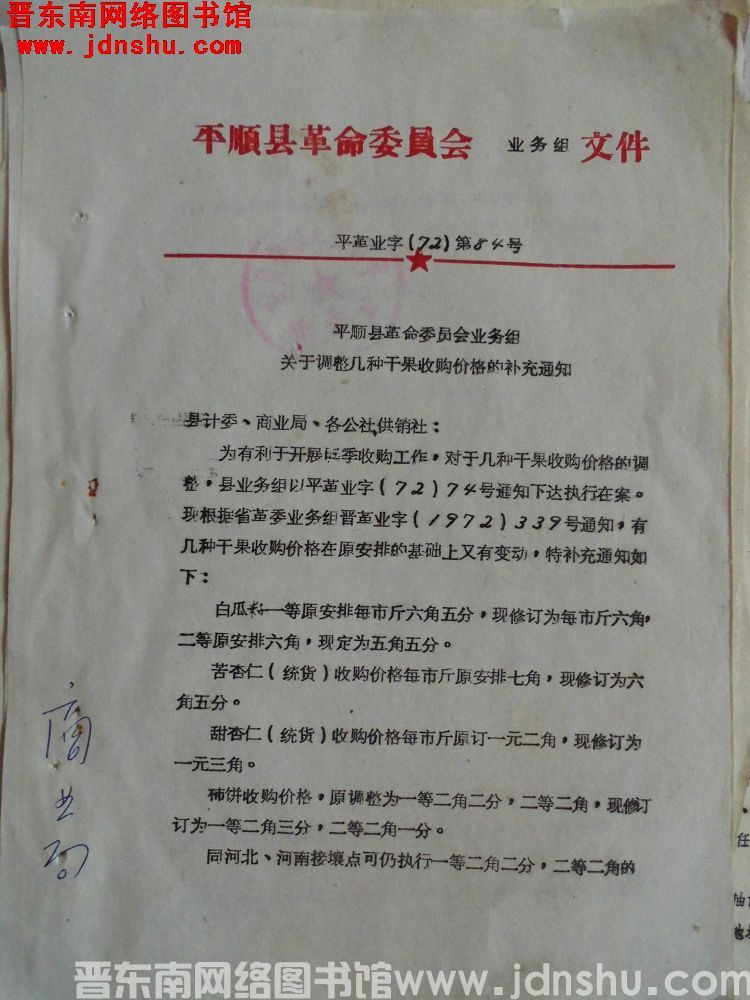 晋东南网络图书馆
www.jdnshu.com
平顺县革命委員会 业务组 文件
平革业字(72)第84号
平顺县革命委员会业务组
关于调整几种干果收购价格的补充通知
县计委、商业局、各公社供销社：
为有利于开展旺季收购工作，对于几种干果收购价格的调
整，县业务组以平革业字(72)74号通知下达执行在案。
现根据省革委业务组晋革业字(1972)339号通知，有
几种干果收购价格在原安排的基础上又有变动，特补充通知如
下：
白瓜籽一等原安排每市斤六角五分，现修订为每市斤六角，
二等原安排六角，现定为五角五分。
苦杏仁(统货)收购价格每市斤原安排七角，现修订为六
角五分。
甜杏仁(统货)收购价格每市斤原订一元二角，现修订为
一元三角。
柿饼收购价格，原调整为一等二角二分，二等二角，现修订
订为一等二角三分，二等二角一分。
同河北、河南接壤点可仍执行一等二角二分，二等二角的
商业局
任
晋东南网络图书馆www.jdnshu.com